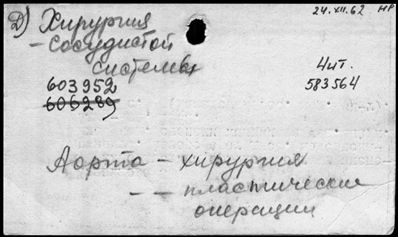 24.XII.62 НР
Д) Хирургия
- сосудистой
системы
Чит.
603952
583564
606289
Аорта - хирургия
- - пластические
операции